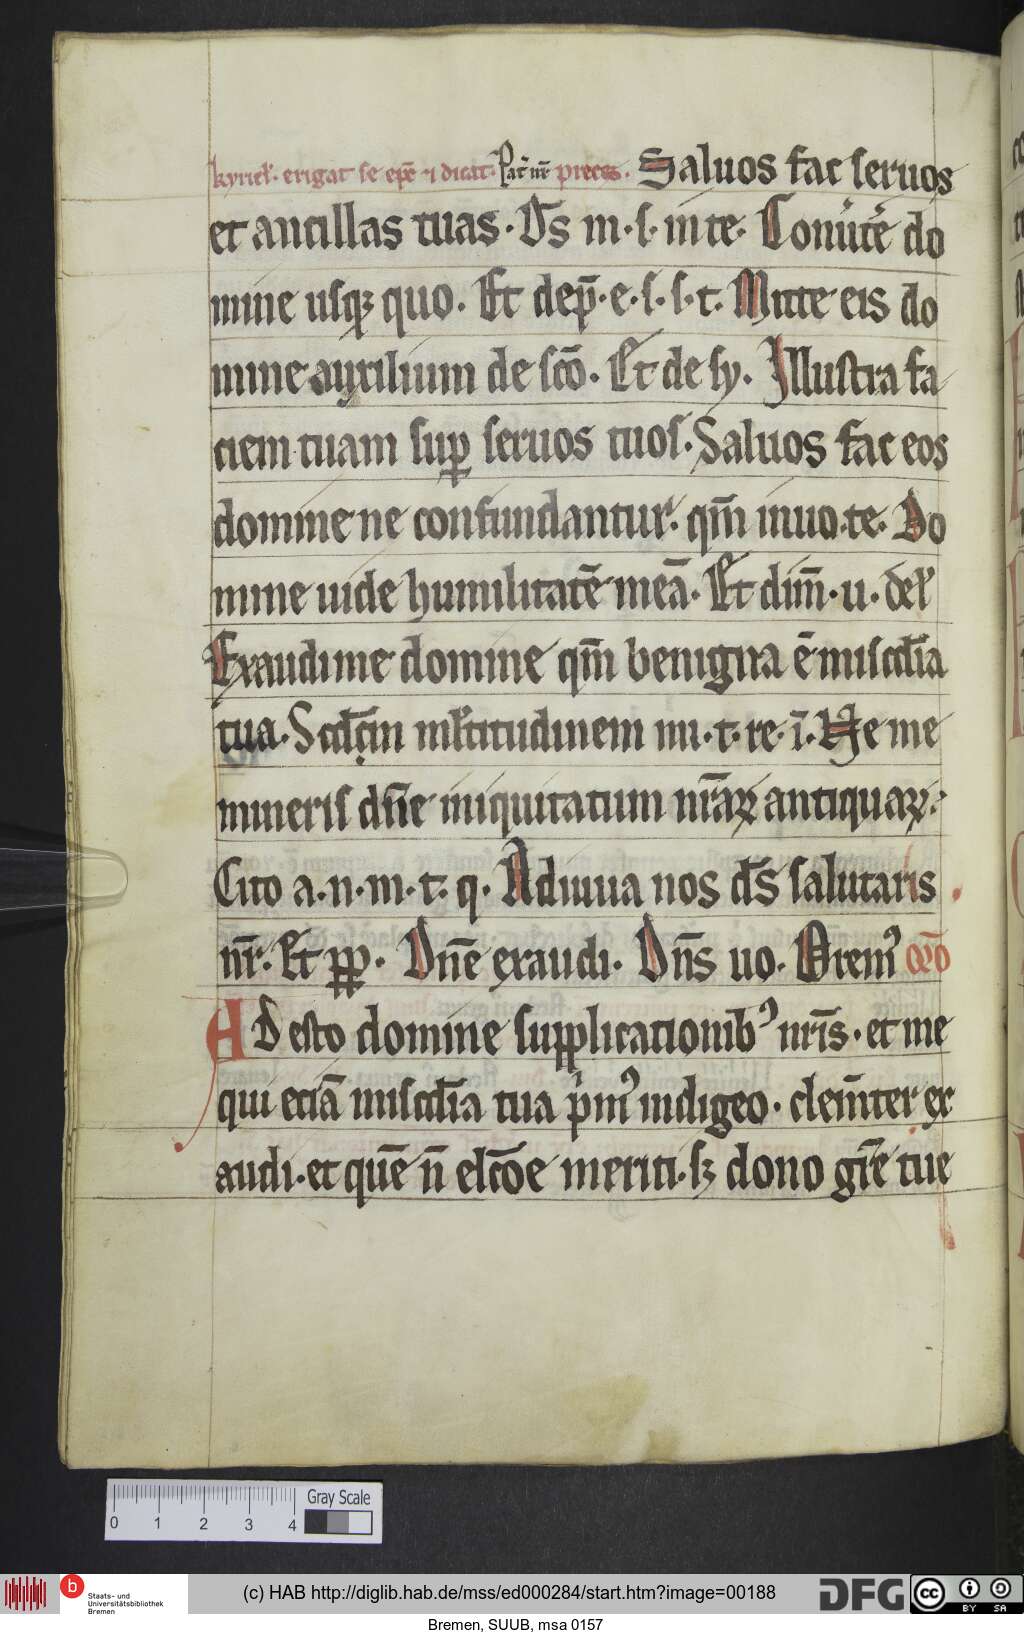 kyriel'. erigat se epc̄ ⁊ dicat. Pat̄ nr̄ preces. Saluos fac seruos
et ancillas tuas. D̄s m. s. in te. Conuꝰtē do
mine usqꝫ quo. Et dep̄. e. s. s. t. Mitte eis do
mine auxilium de scō. Et de sy. Illustra fa
ciem tuam suꝑ seruos tuos. Saluos fac eos
domine ne confundantur. qm̄ inuo. te. Do
mine uide humilitatē meā. Et dim̄. u. del'
Exaudi me domine qm̄ benigna ē mis̄cdīa
tua. Scdm̄ ml'titudinem mi. t. re. ī. Ne me
mineris dn̄e iniquitatum nr̄aꝝ antiquaꝝ.
Cito a. n. m. t. q. Adiuua nos d̄s salutaris
nr̄. Et ꝓp. Dn̄e exaudi. Dn̄s uo. Oremꝰ orō
ADesto domine supplicationibꝰ nr̄is. et me
qui etiā mis̄cdīa tua p'mꝰ indigeo. clem̄ter ex
audi. et quē n̄ elcōe meriti. sꝫ dono gr̄e tue
0 1 2 3 4
Gray Scale
b Staats- und
Universitätsbibliothek
Bremen
(c) HAB http://diglib.hab.de/mss/ed000284/start.htm?image=00188
DFG
cc BY SA
Bremen, SUUB, msa 0157